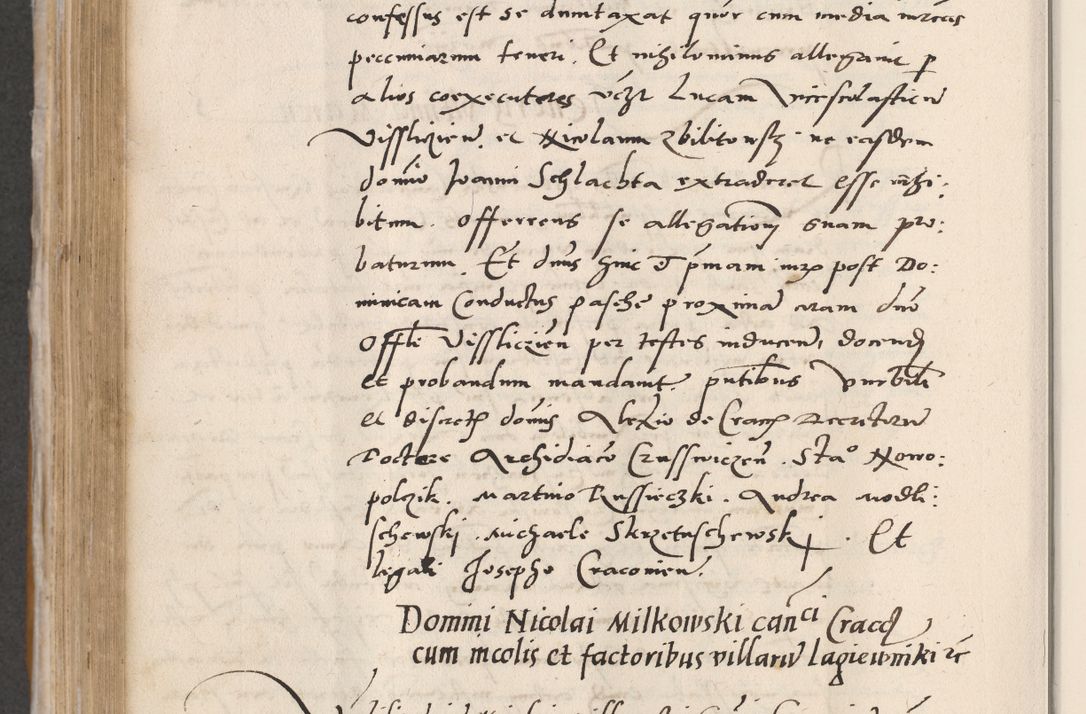 confessus est se duntaxat quor cum media marcas
peccuniarum teneri. Et nihilominus allegavit p
alios coexecutores vczt Lucam Vicescolasticu
Vissliczien. et Nicolaum Zbibitowsky ne easdem
domio Joanni Schlachta extraderet esse inhi:
bitum. offerens se allegationem suam pro:
baturum. Et dnus hinc ad primam iurz post Do:
minicam Conductus pasche proxima coram dno
Offli Vissliczien per testes inducend docend
et probandum mandavit pntibus Vnrbilb
et discretz domis Alexio de Crac Decretoru
Doctore Archidiaco Crusswiczen. Stao Nowo:
polzik. Martino Russieczki. Andrea Modli:
schewski. Michaele Skrzetuschewski. Et
legali Josepho Cracovien.
Domini Nicolai Milkowski canci Cracq
cum incolis et factoribus villaru lagiewniki zc